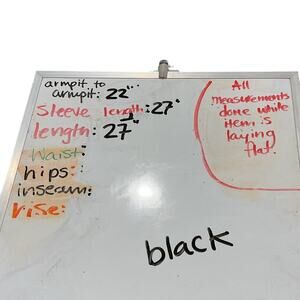 armpit to
armpit: 22"
Sleeve length: 27"
length: 27"
Waist:
hips:
inseam:
rise:
All
measurements
done while
item is
laying
flat.
black